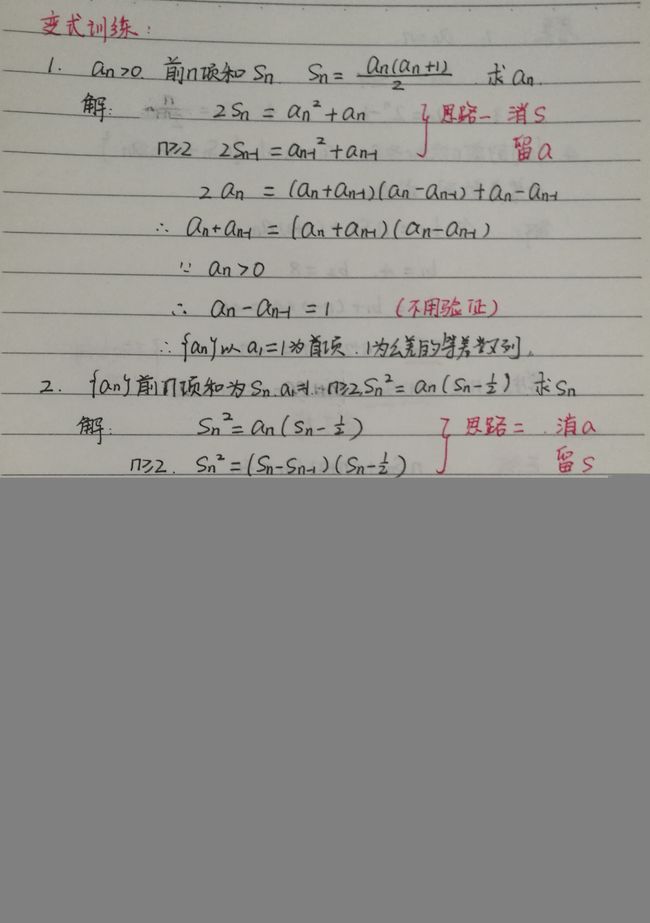 变式训练:
1. an>0 前n项和Sn Sn = an(an+1)/2 求an.
解: ∵ 2Sn = an²+an 思路一 消S
n≥2 2Sn-1 = an-1²+an-1 留a
2an = (an+an-1)(an-an-1)+an-an-1
∴ an+an-1 = (an+an-1)(an-an-1)
∵ an>0
∴ an-an-1 = 1 (不用验证)
∴ {an}以a1=1为首项.1为公差的等差数列.
2. {an}前n项和为Sn.a1=1. n≥2 Sn² = an(Sn-½) 求Sn
解: Sn² = an(Sn-½) 思路二 消a
n≥2. Sn² = (Sn-Sn-1)(Sn-½) 留S